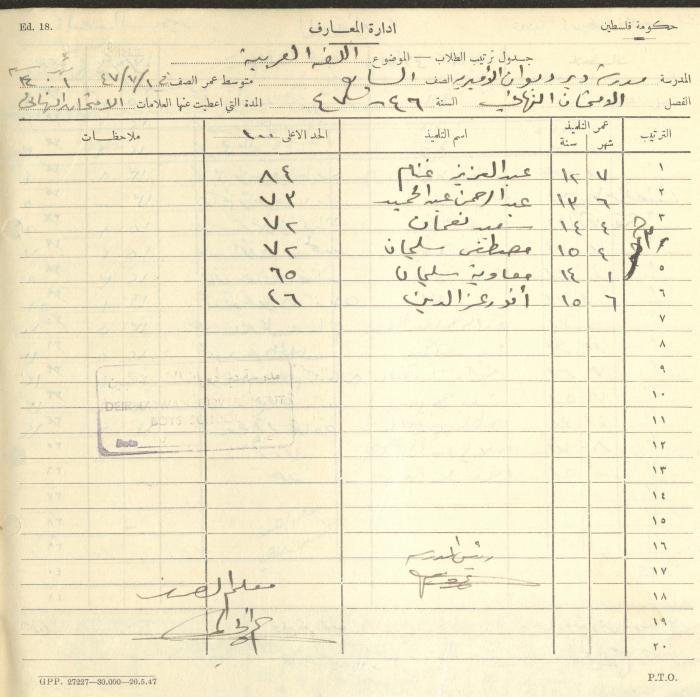 Ed. 18.
ادارة المعارف
حكومة فلسطين
جدول ترتيب الطلاب — الموضوع اللغة العربية
المدرسة مدرسة دير ديوان الأميرية الصف السابع متوسط عمر الصف في ٤٧/٧/١
الفصل الامتحان النهائي السنة ٤٦-٤٧ المدة التي اعطيت عنها العلامات الامتحان النهائي
الترتيب عمر التلميذ اسم التلميذ الحد الاعلى ١٠٠ ملاحظات
شهر سنة
١ ٧ ١٢ عبد العزيز غنام ٨٤
٢ ٦ ١٣ عبد الرحمن عبد الحميد ٧٣
٣ ٤ ١٤ سعيد نعمان ٧٢
٤ ٤ ١٥ مصطفى سليمان ٧٢
٥ ١ ١٤ معاوية سليمان ٦٥
٦ ٦ ١٥ أنور عز الدين ٢٦
٧
٨
٩
١٠
١١
١٢
١٣
١٤
١٥
١٦
١٧
١٨
١٩
٢٠
BOYS SCHOOL
Date
رئيس المدرسة
معلم الصف
G.P.P. 27227—30.000—20.5.47
P.T.O.